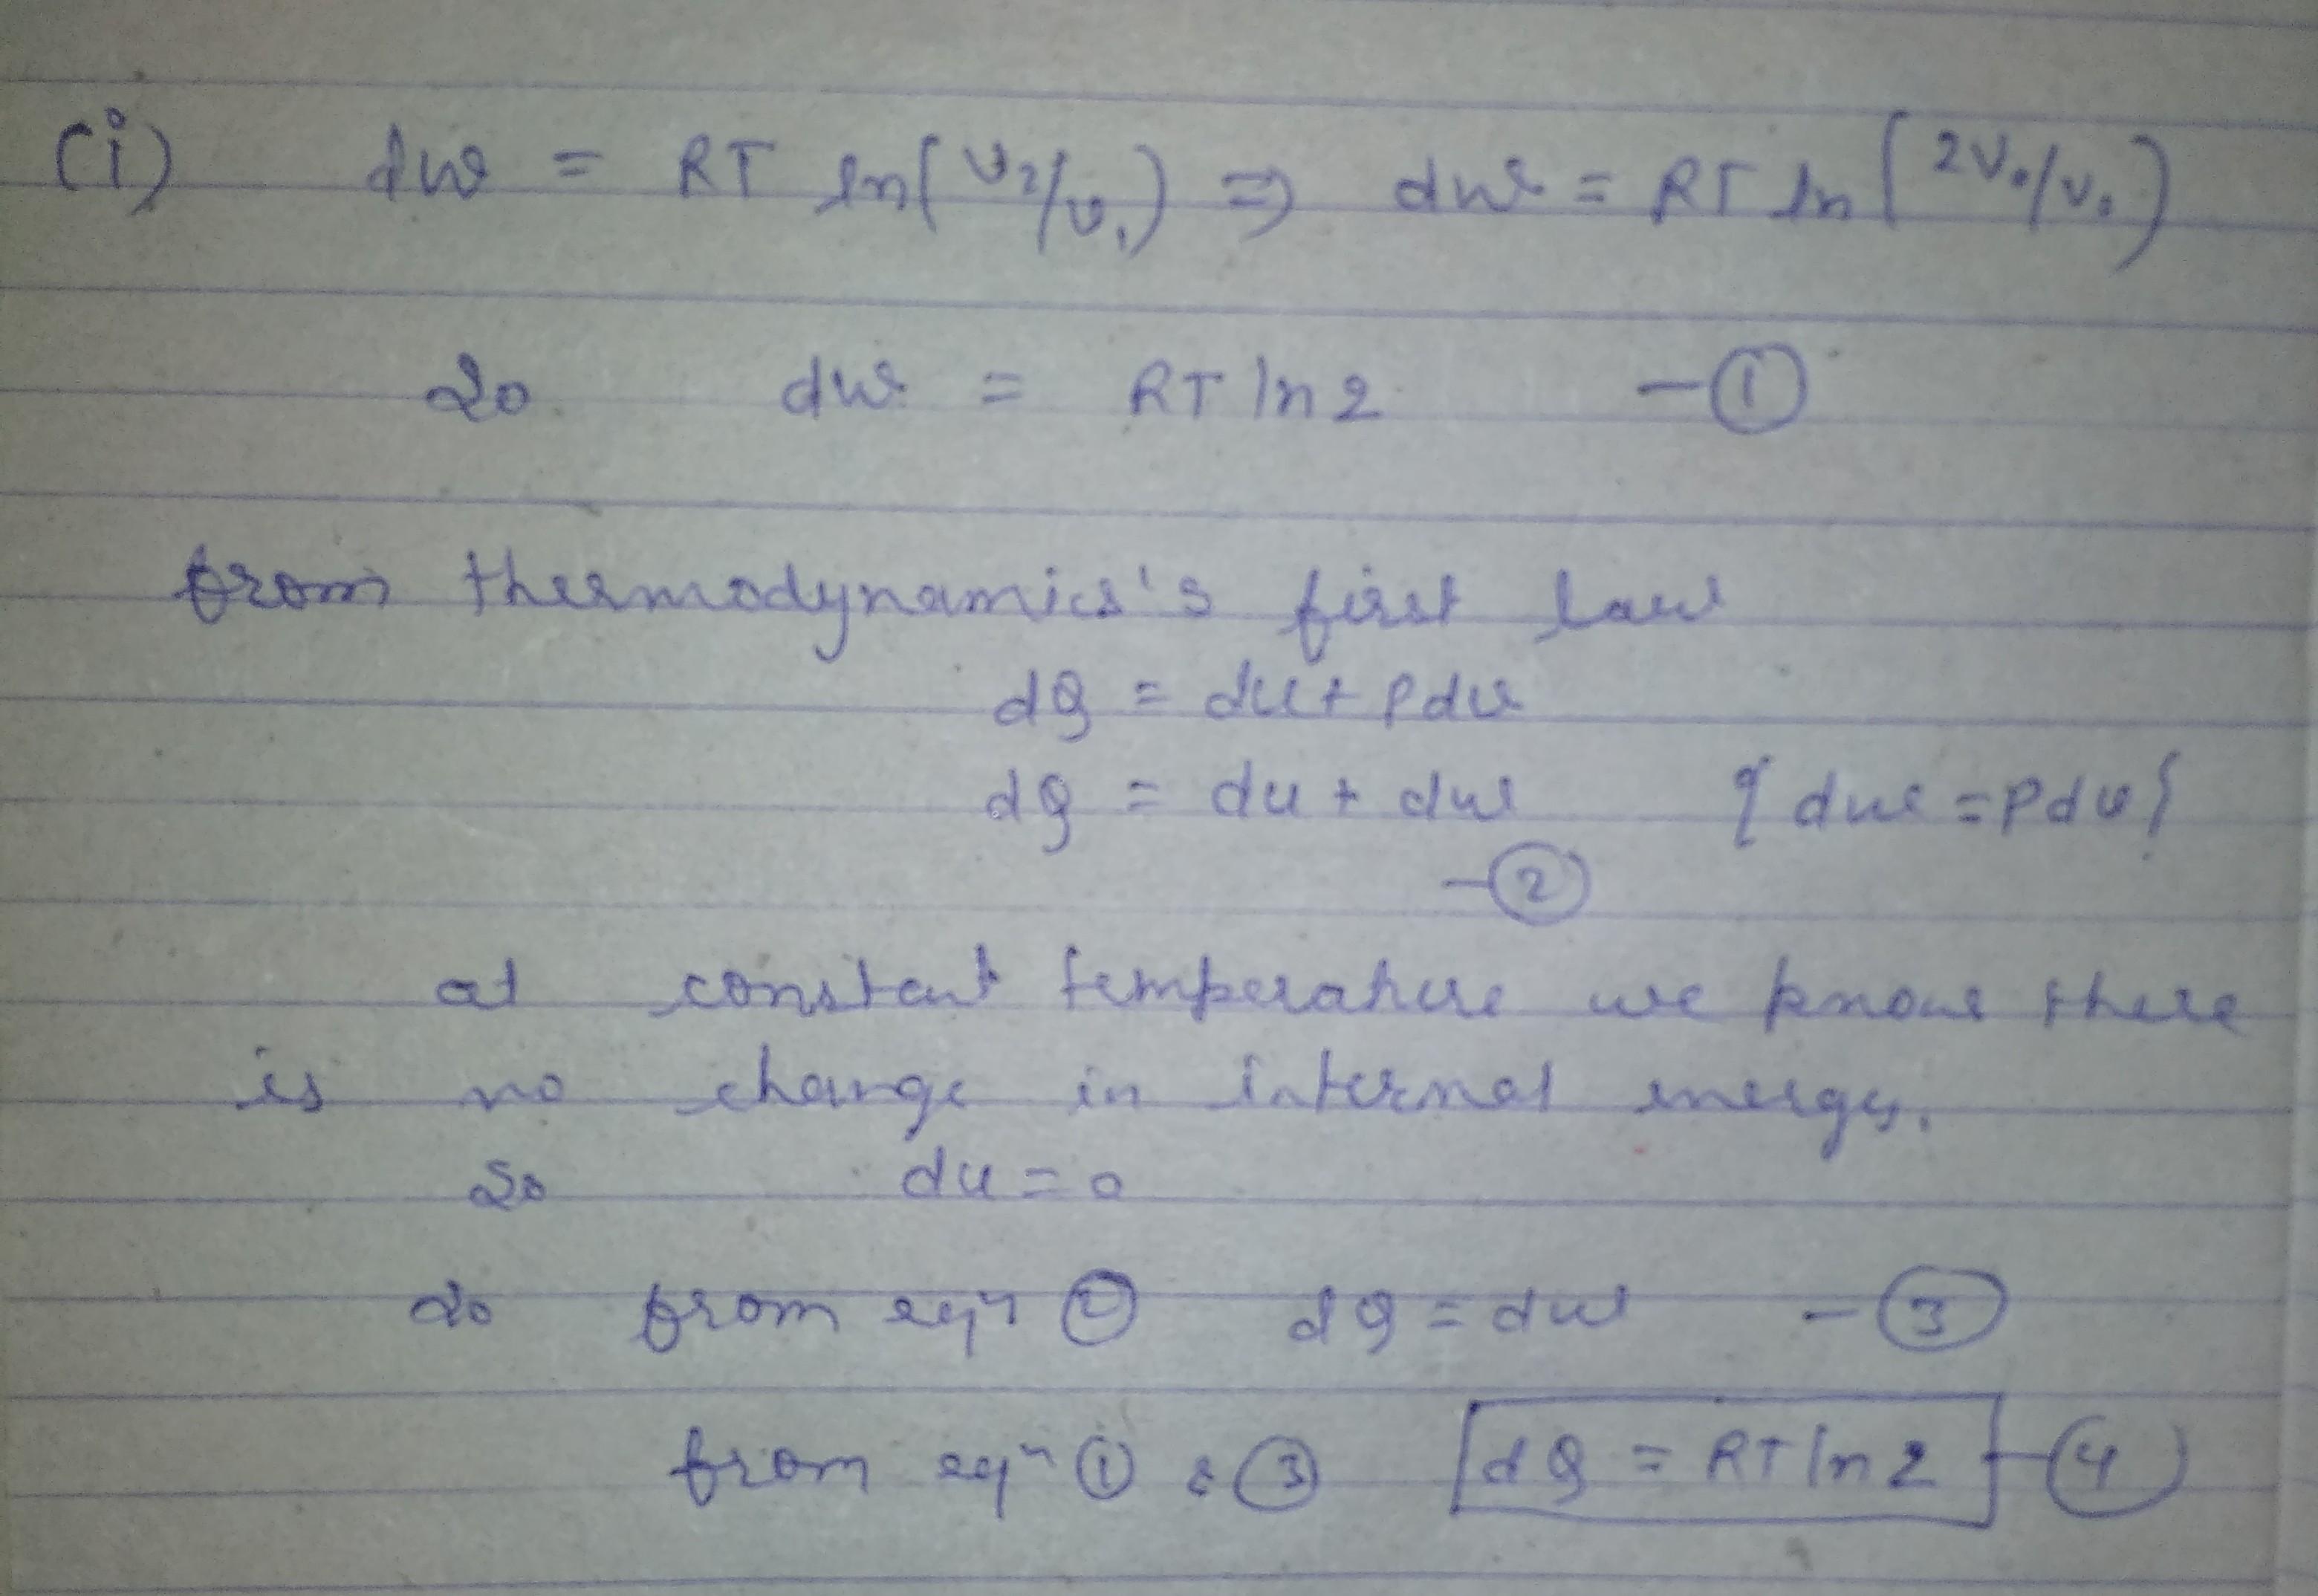 (i) dw = RT ln(v₂/v₁) ⇒ dw = RT ln(2V₀/V₀)
so dw = RT ln2 -①
from thermodynamics's first law
dQ = du + Pdv
dQ = du + dw {dw = Pdv}
-②
at constant temperature we know there
is no change in internal energy.
so du = 0
so from eqⁿ ② dQ = dw -③
from eqⁿ ① & ③ dQ = RT ln2 -④